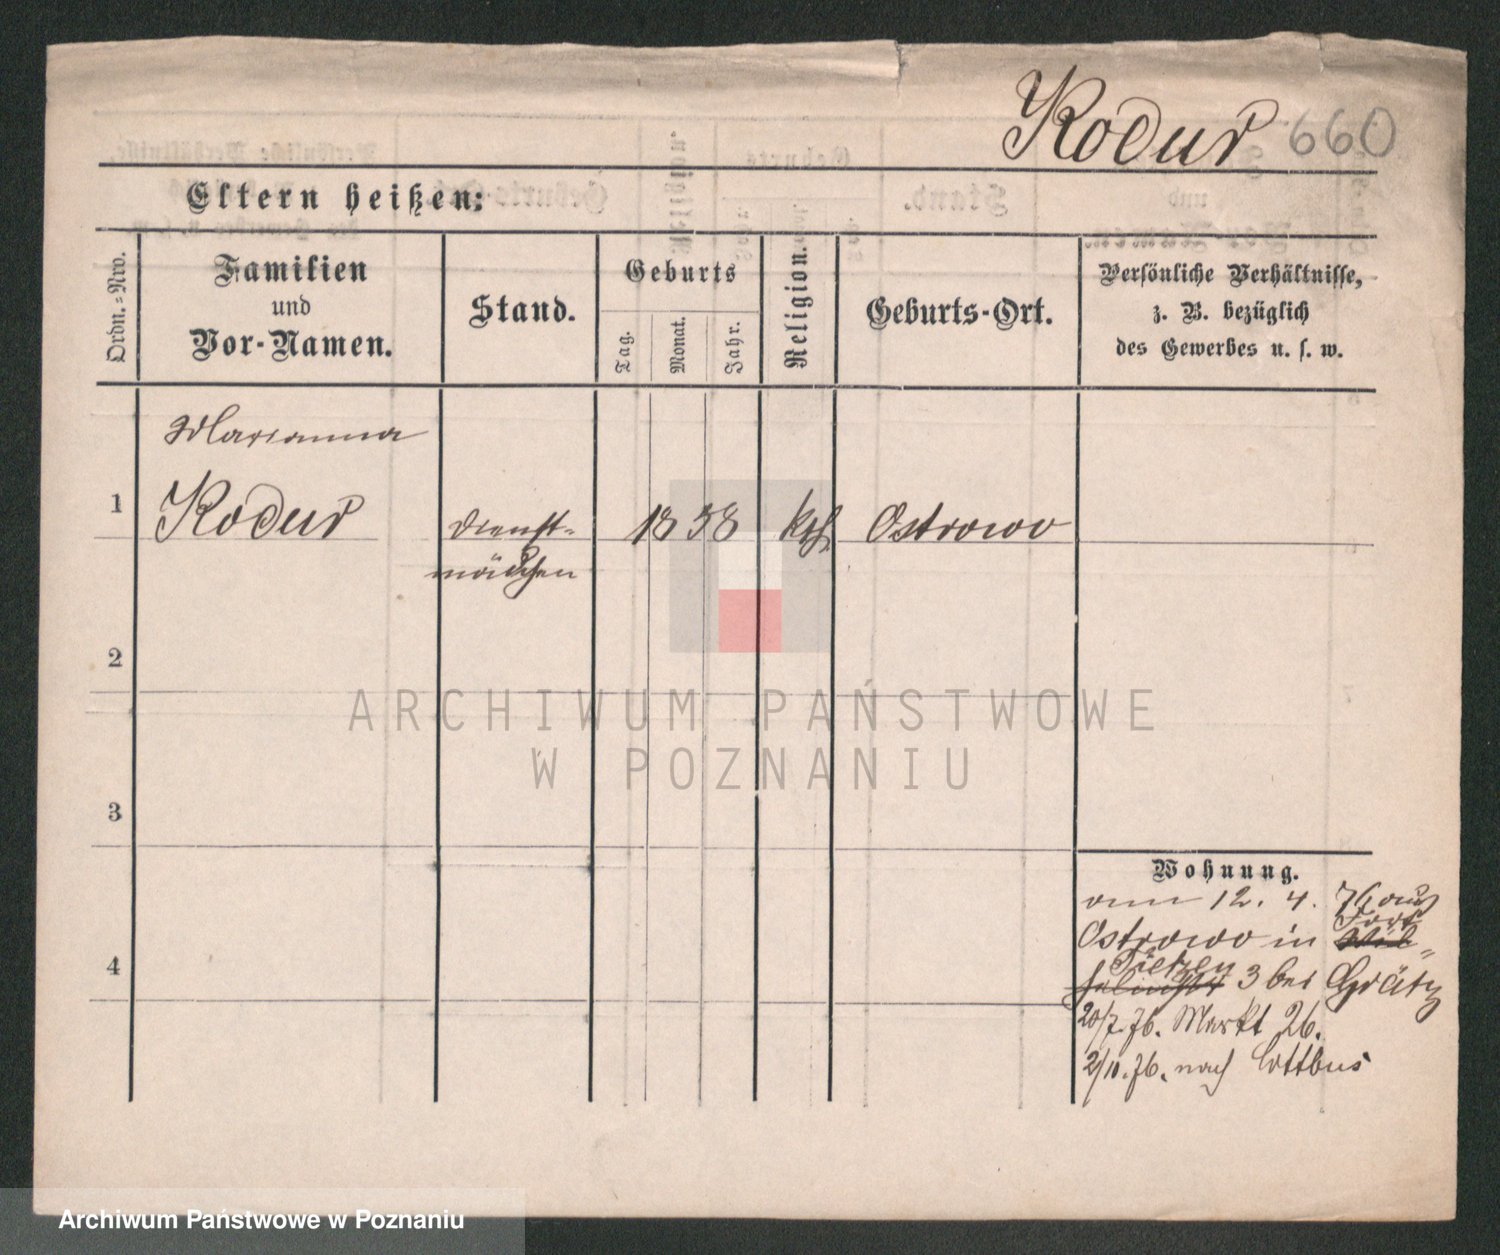 Kodur 660
Eltern heißen:
Ordn.-Nro.
Familien
und
Vor-Namen.
Stand.
Geburts
Tag.
Monat.
Jahr.
Religion.
Geburts-Ort.
Persönliche Verhältnisse,
z. B. bezüglich
des Gewerbes u. s. w.
Marianna
1 Kodur Dienst- 1838 kth Ostrowo
mädchen
2
3
4
Wohnung.
12. 4. 76 aus
Ostrowo in
3 bei Grätz
20/7. 76. Markt 26.
2/10. 76. nach Cottbus
ARCHIWUM PAŃSTWOWE
W POZNANIU
Archiwum Państwowe w Poznaniu